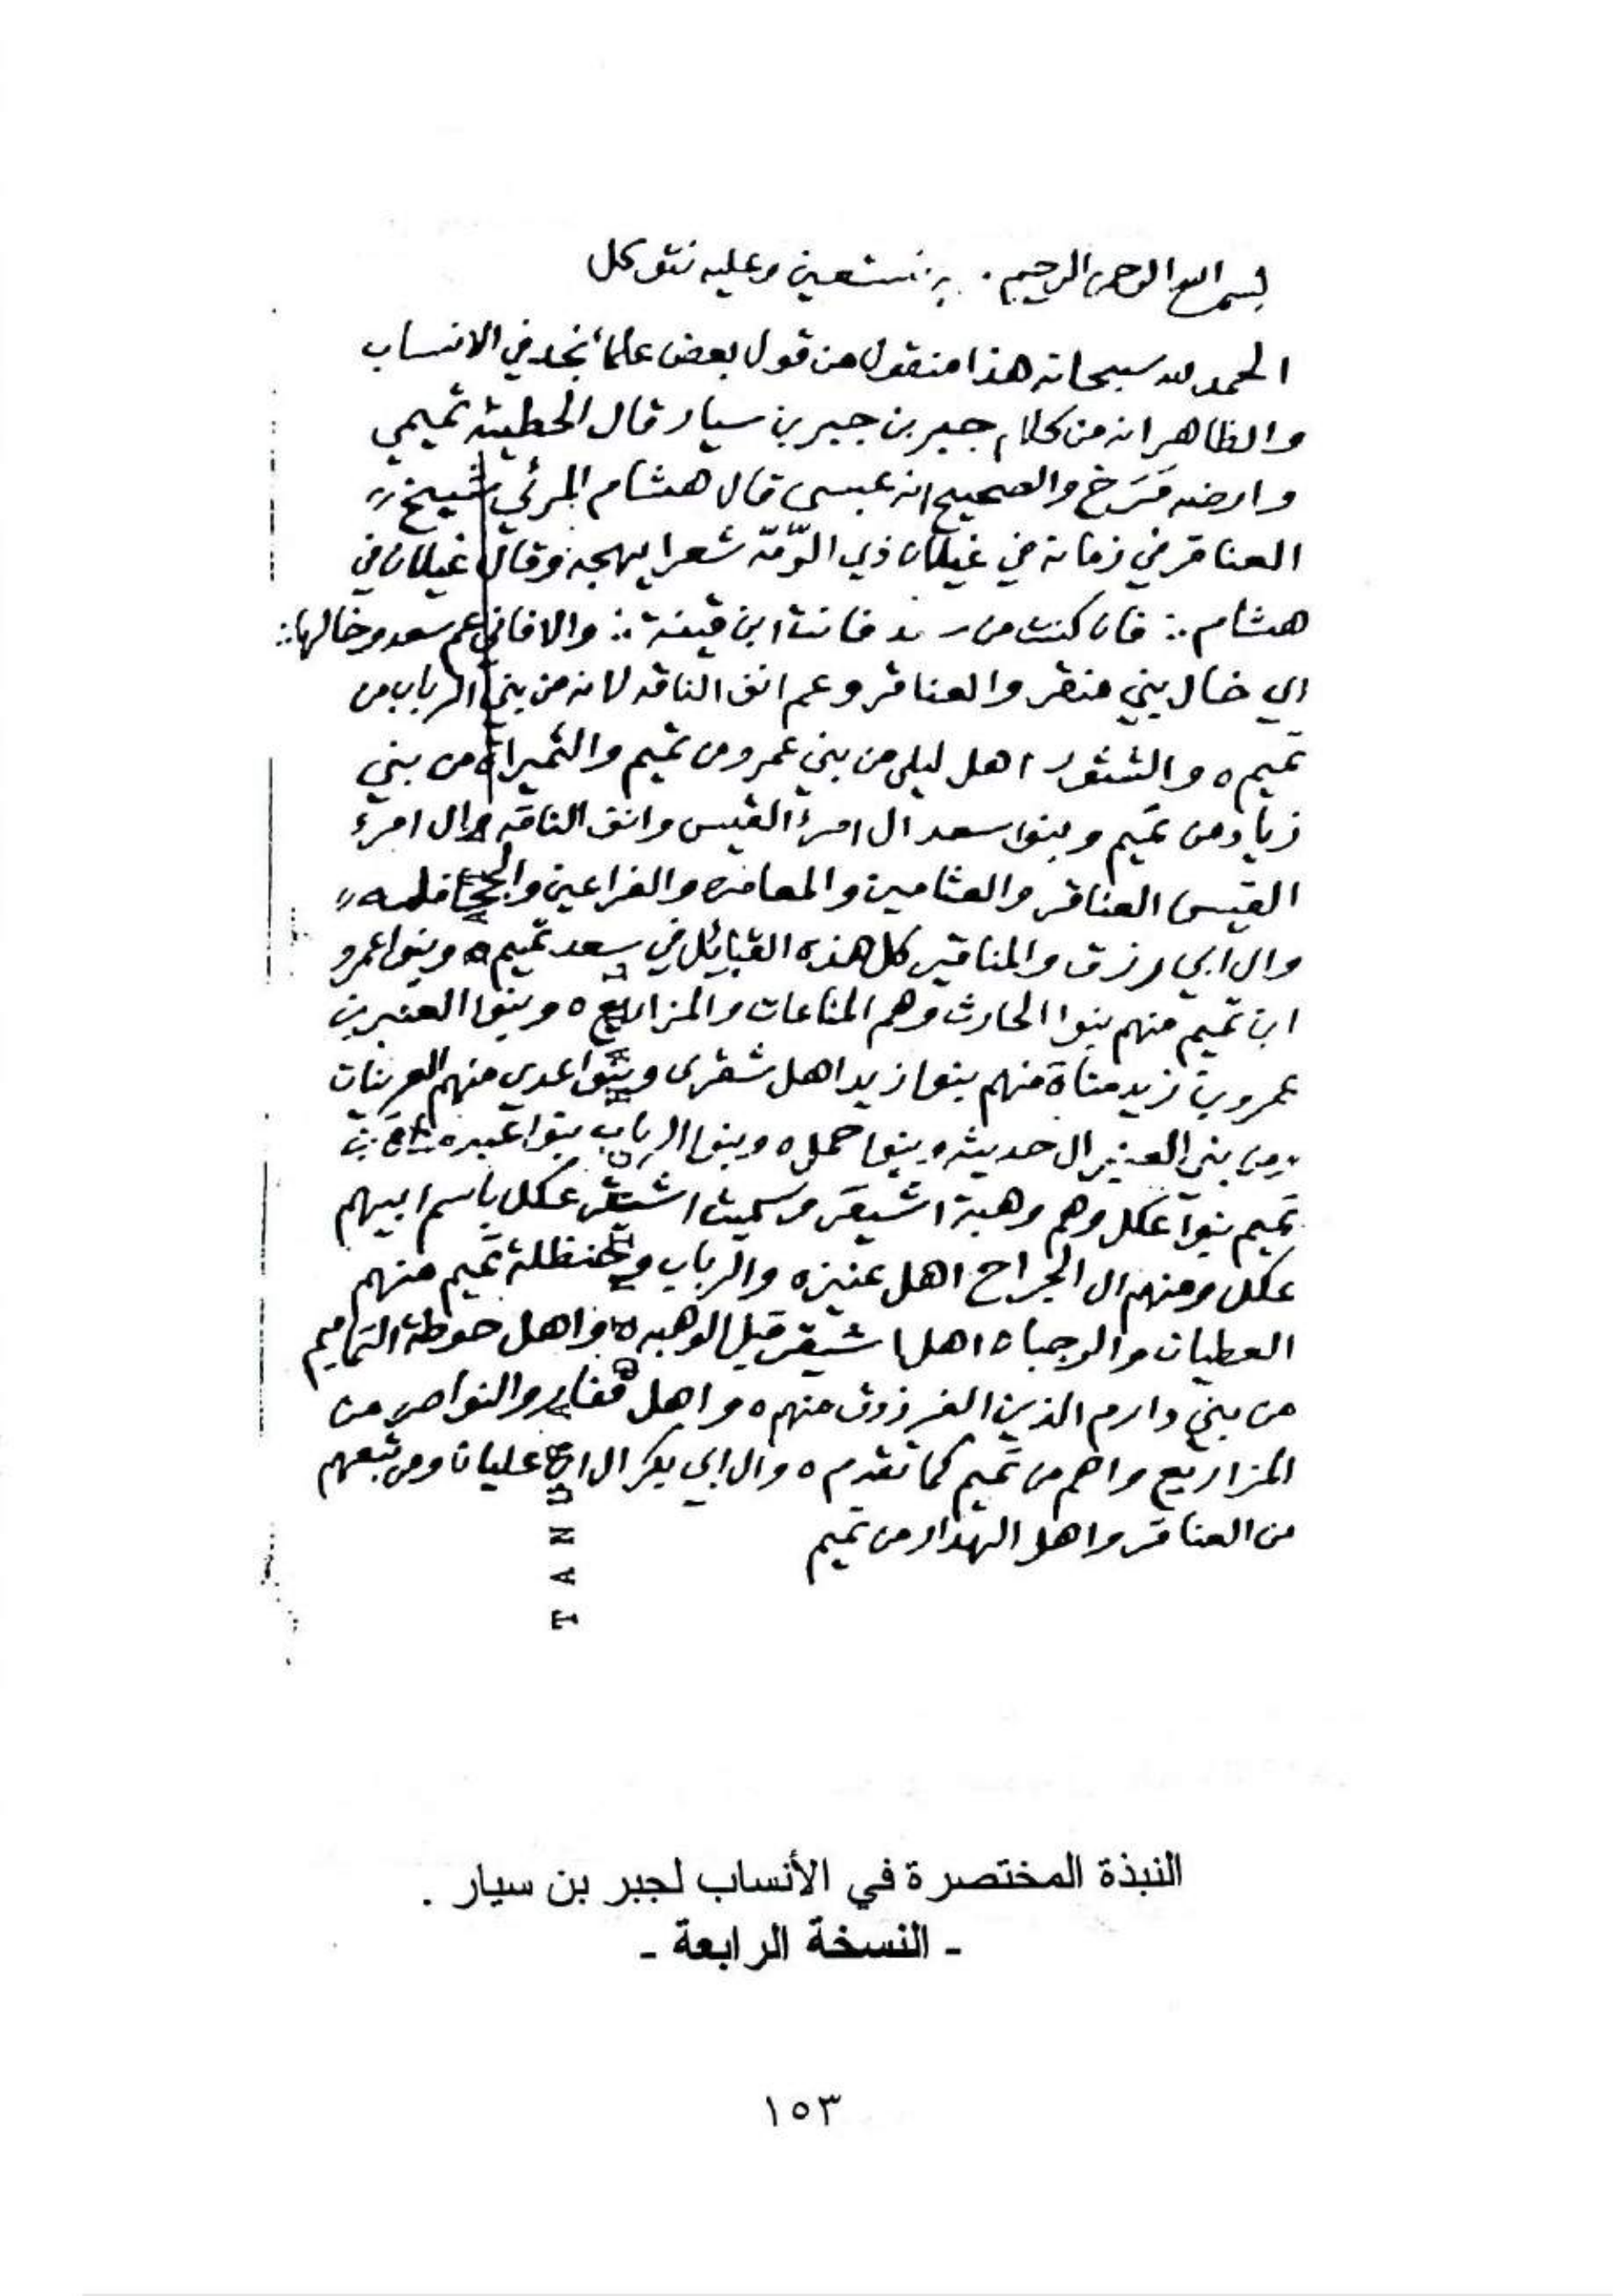 بسم الله الرحمن الرحيم . به نستعين وعليه نتوكل
الحمد لله سبحانه هذا منقول من قول بعض علماء نجد في الانساب
والظاهر انه من كلام جبر بن جبر بن سيار قال الحطيئه تميمي
وارضه مَرَخ والصحيح انه عبسي قال هشام المرئي شيخ
العناقر في زمانه في غيلان ذي الرُّمّه شعرا يهجه وقال غيلان في
هشام فان كنت من فانت ابن قينة والا فاني عم سعد وخالها
اي خال بني منقر والعناقر وعم انف الناقه لانه من بني الرباب من
تميم ه والشثور اهل ليلى من بني عمرو من تميم والثميرات من بني
زياد من تميم وبنوا سعد ال امرء القيس وانف الناقه وال امرء
القيس العناقر والعثامين والمعافره والفراعين
وال ابي رزق والمناقير كل هذه القبايل في سعد تميم ه وبنوا عمرو
ابن تميم منهم بنوا الحارث وهم المناعات والمزاريع ه وبنوا العنبر بن
عمرو بن زيد مناة منهم بنوا زيد اهل شقرى وبنوا عدي منهم العرينات
ومن بني العنبر ال حديثه وبنوا حمل ه وبنوا الرباب بنوا
تميم بنوا عكل وهم وهبة اشيقر وسميت اشيقر عكل باسم ابيهم
عكل ومنهم ال الجراح اهل عنيزه والرباب حنظلة تميم منهم
العطيان والوجبان اهل اشيقر قبل الوهبه ه واهل حوطة التمايم
من بني دارم الذين الفرزدق منهم ه واهل قفار والنواصر من
المزاريع واهم من تميم كما تقدم ه وال ابي بكر ال عليان ومن تبعهم
من العناقر واهل الهدار من تميم
TAN
النبذة المختصرة في الأنساب لجبر بن سيار .
- النسخة الرابعة -
١٥٣